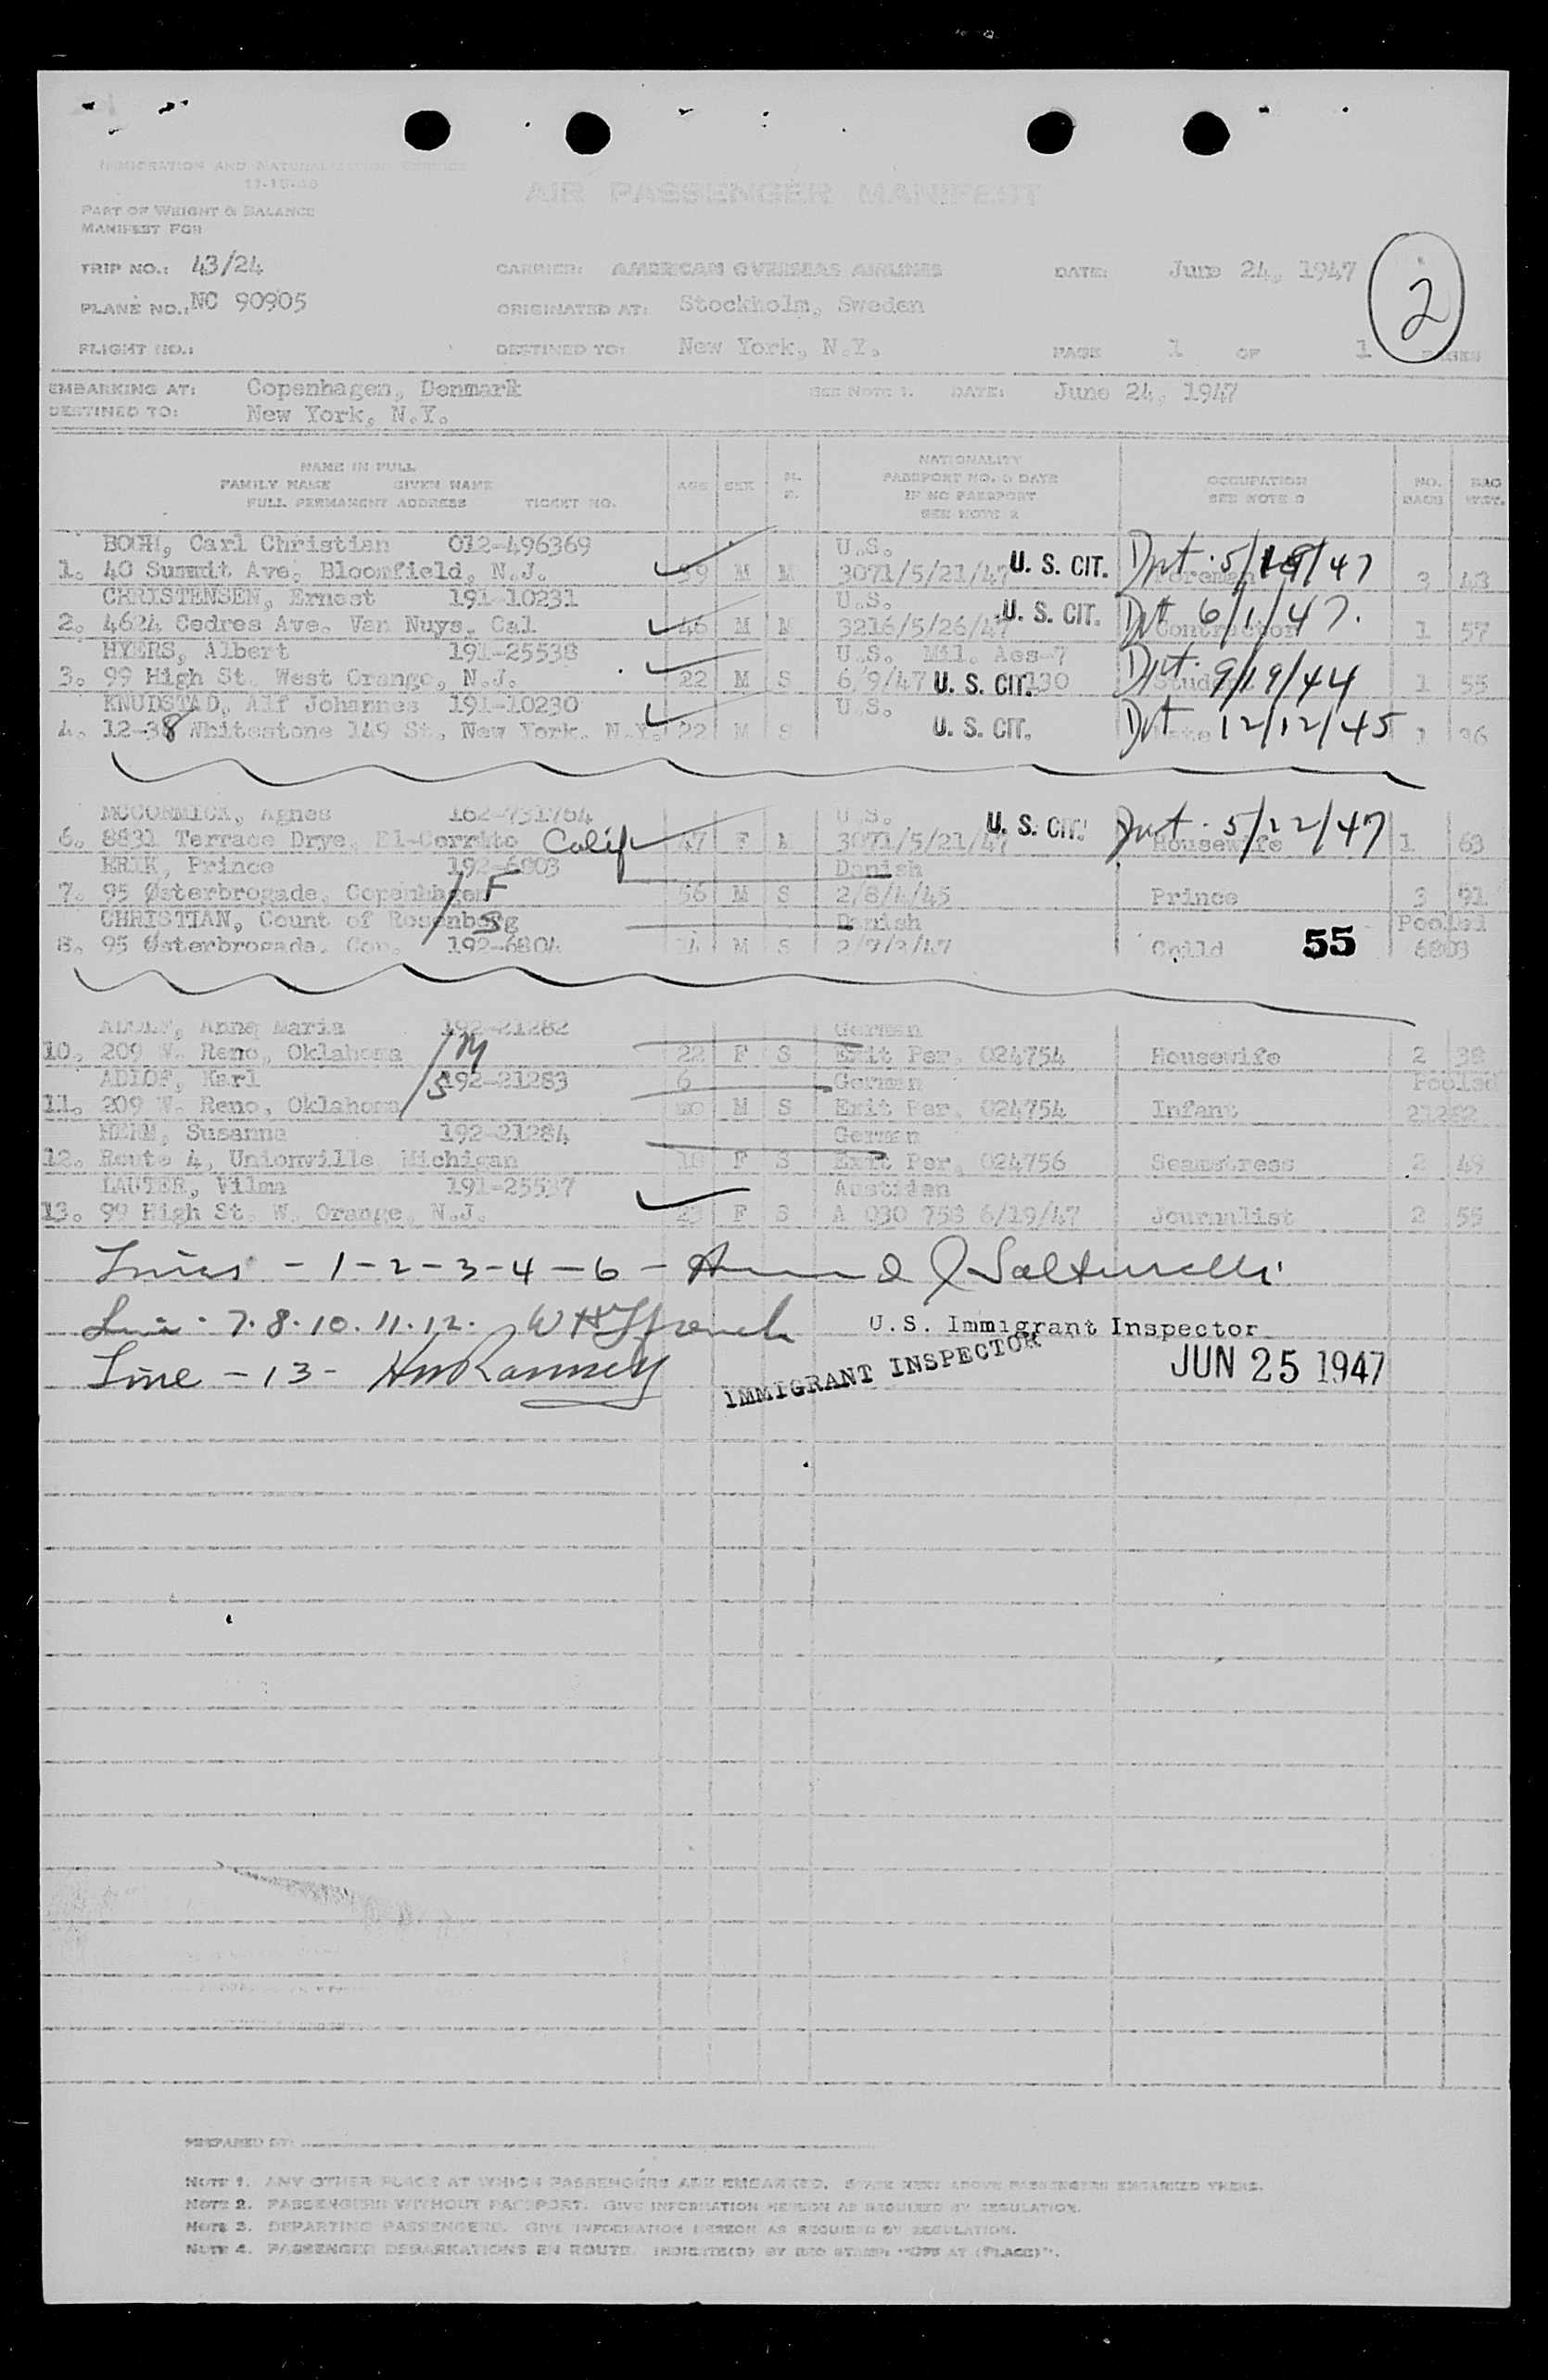 IMMIGRATION AND NATURALIZATION SERVICE
AIR PASSENGER MANIFEST
PART OF WEIGHT & BALANCE
MANIFEST FOR
TRIP NO.: 43/24 CARRIER: AMERICAN OVERSEAS AIRLINES DATE: June 24, 1947
2
PLANE NO.: NC 90905 ORIGINATED AT: Stockholm, Sweden
FLIGHT NO.: DESTINED TO: New York, N.Y. PAGE 1 OF 1 PAGES
EMBARKING AT: Copenhagen, Denmark SEE NOTE 1. DATE: June 24, 1947
DESTINED TO: New York, N.Y.
NAME IN FULL NATIONALITY
FAMILY NAME GIVEN NAME AGE SEX PASSPORT NO. & DATE OCCUPATION NO. BAG
FULL PERMANENT ADDRESS TICKET NO. IF NO PASSPORT BAGS WGT.
SEE NOTE 2
Carl Christian 012-496369 U.S.
1. 40 Summit Ave. Bloomfield, N.J. 39 M M 3071/5/21/47 U. S. CIT. Foreman 3 43
CHRISTENSEN, Ernest 191-10231 U.S.
2. 4624 Cedros Ave. Van Nuys, Cal 46 M M 3216/5/26/47 U. S. CIT. Dpt 6/1/47. Contractor 1 57
HYERS, Albert 191-25538 U.S. Mil. Aes-7
3. 99 High St. West Orange, N.J. 22 M S 6/9/47 U. S. CIT. Dpt. 9/19/44 Student 1 55
KNUDSTAD, Alf Johannes 191-10230 U.S.
4. 12-38 Whitestone 149 St., New York, N.Y. 22 M S U. S. CIT. Dpt 12/12/45 1 36
MCCORMICK, Agnes 162-731764 U.S.
6. 8831 Terrace Drye, El-Cerrito Calif 47 F M 3071/5/21/47 U. S. CIT. Dpt. 5/22/47 Housewife 1 63
ERIK, Prince 192-6803 Danish
7. 95 Østerbrogade, Copenhagen F 56 M S 2/8/4/45 Prince 3 91
CHRISTIAN, Count of Rosenborg S Danish Pooled
8. 95 Østerbrogade. Cop. 192-6804 M S Child 55 6803
ADLOF, Anna Maria 192-21282 German
10. 209 W. Reno, Oklahoma M 22 F S Exit Per. 024754 Housewife 2 38
ADLOF, Karl S 192-21283 6 German Pooled
11. 209 W. Reno, Oklahoma mo M S Exit Per. 024754 Infant 21282
Susanna 192-21284 German
12. Route 4, Unionville Michigan F S Exit Per. 024756 Seamstress 2 49
LAUTER, Vilma 191-25537 Austrian
13. 99 High St. W. Orange, N.J. 23 F S A 030 758 6/19/47 Journalist 2 55
Lines - 1-2-3-4-6 -
Line. 7.8.10.11.12. U.S. Immigrant Inspector
Line - 13 - IMMIGRANT INSPECTOR JUN 25 1947
PREPARED BY:
NOTE 1. ANY OTHER PLACE AT WHICH PASSENGERS ARE EMBARKED. STATE NEXT ABOVE PASSENGERS EMBARKED THERE.
NOTE 2. PASSENGERS WITHOUT PASSPORT. GIVE INFORMATION HEREON AS REQUIRED BY REGULATION.
NOTE 3. DEPARTING PASSENGERS. GIVE INFORMATION HEREON AS REQUIRED BY REGULATION.
NOTE 4. PASSENGER DEBARKATIONS EN ROUTE. INDICATE(D) BY RED STAMP: "OFF AT (PLACE)".